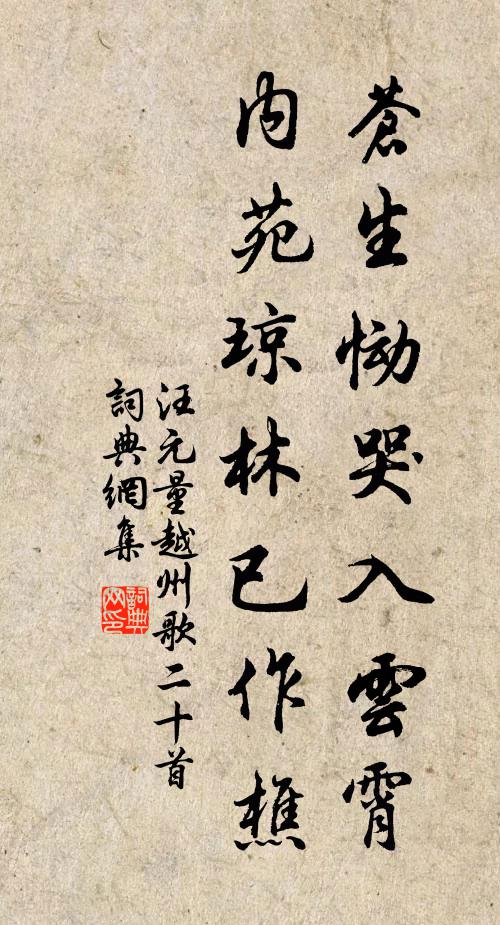 蒼生慟哭入雲霄
内苑琼林已作樵
汪元量越州歌二十首
詞典網集
詞典网印